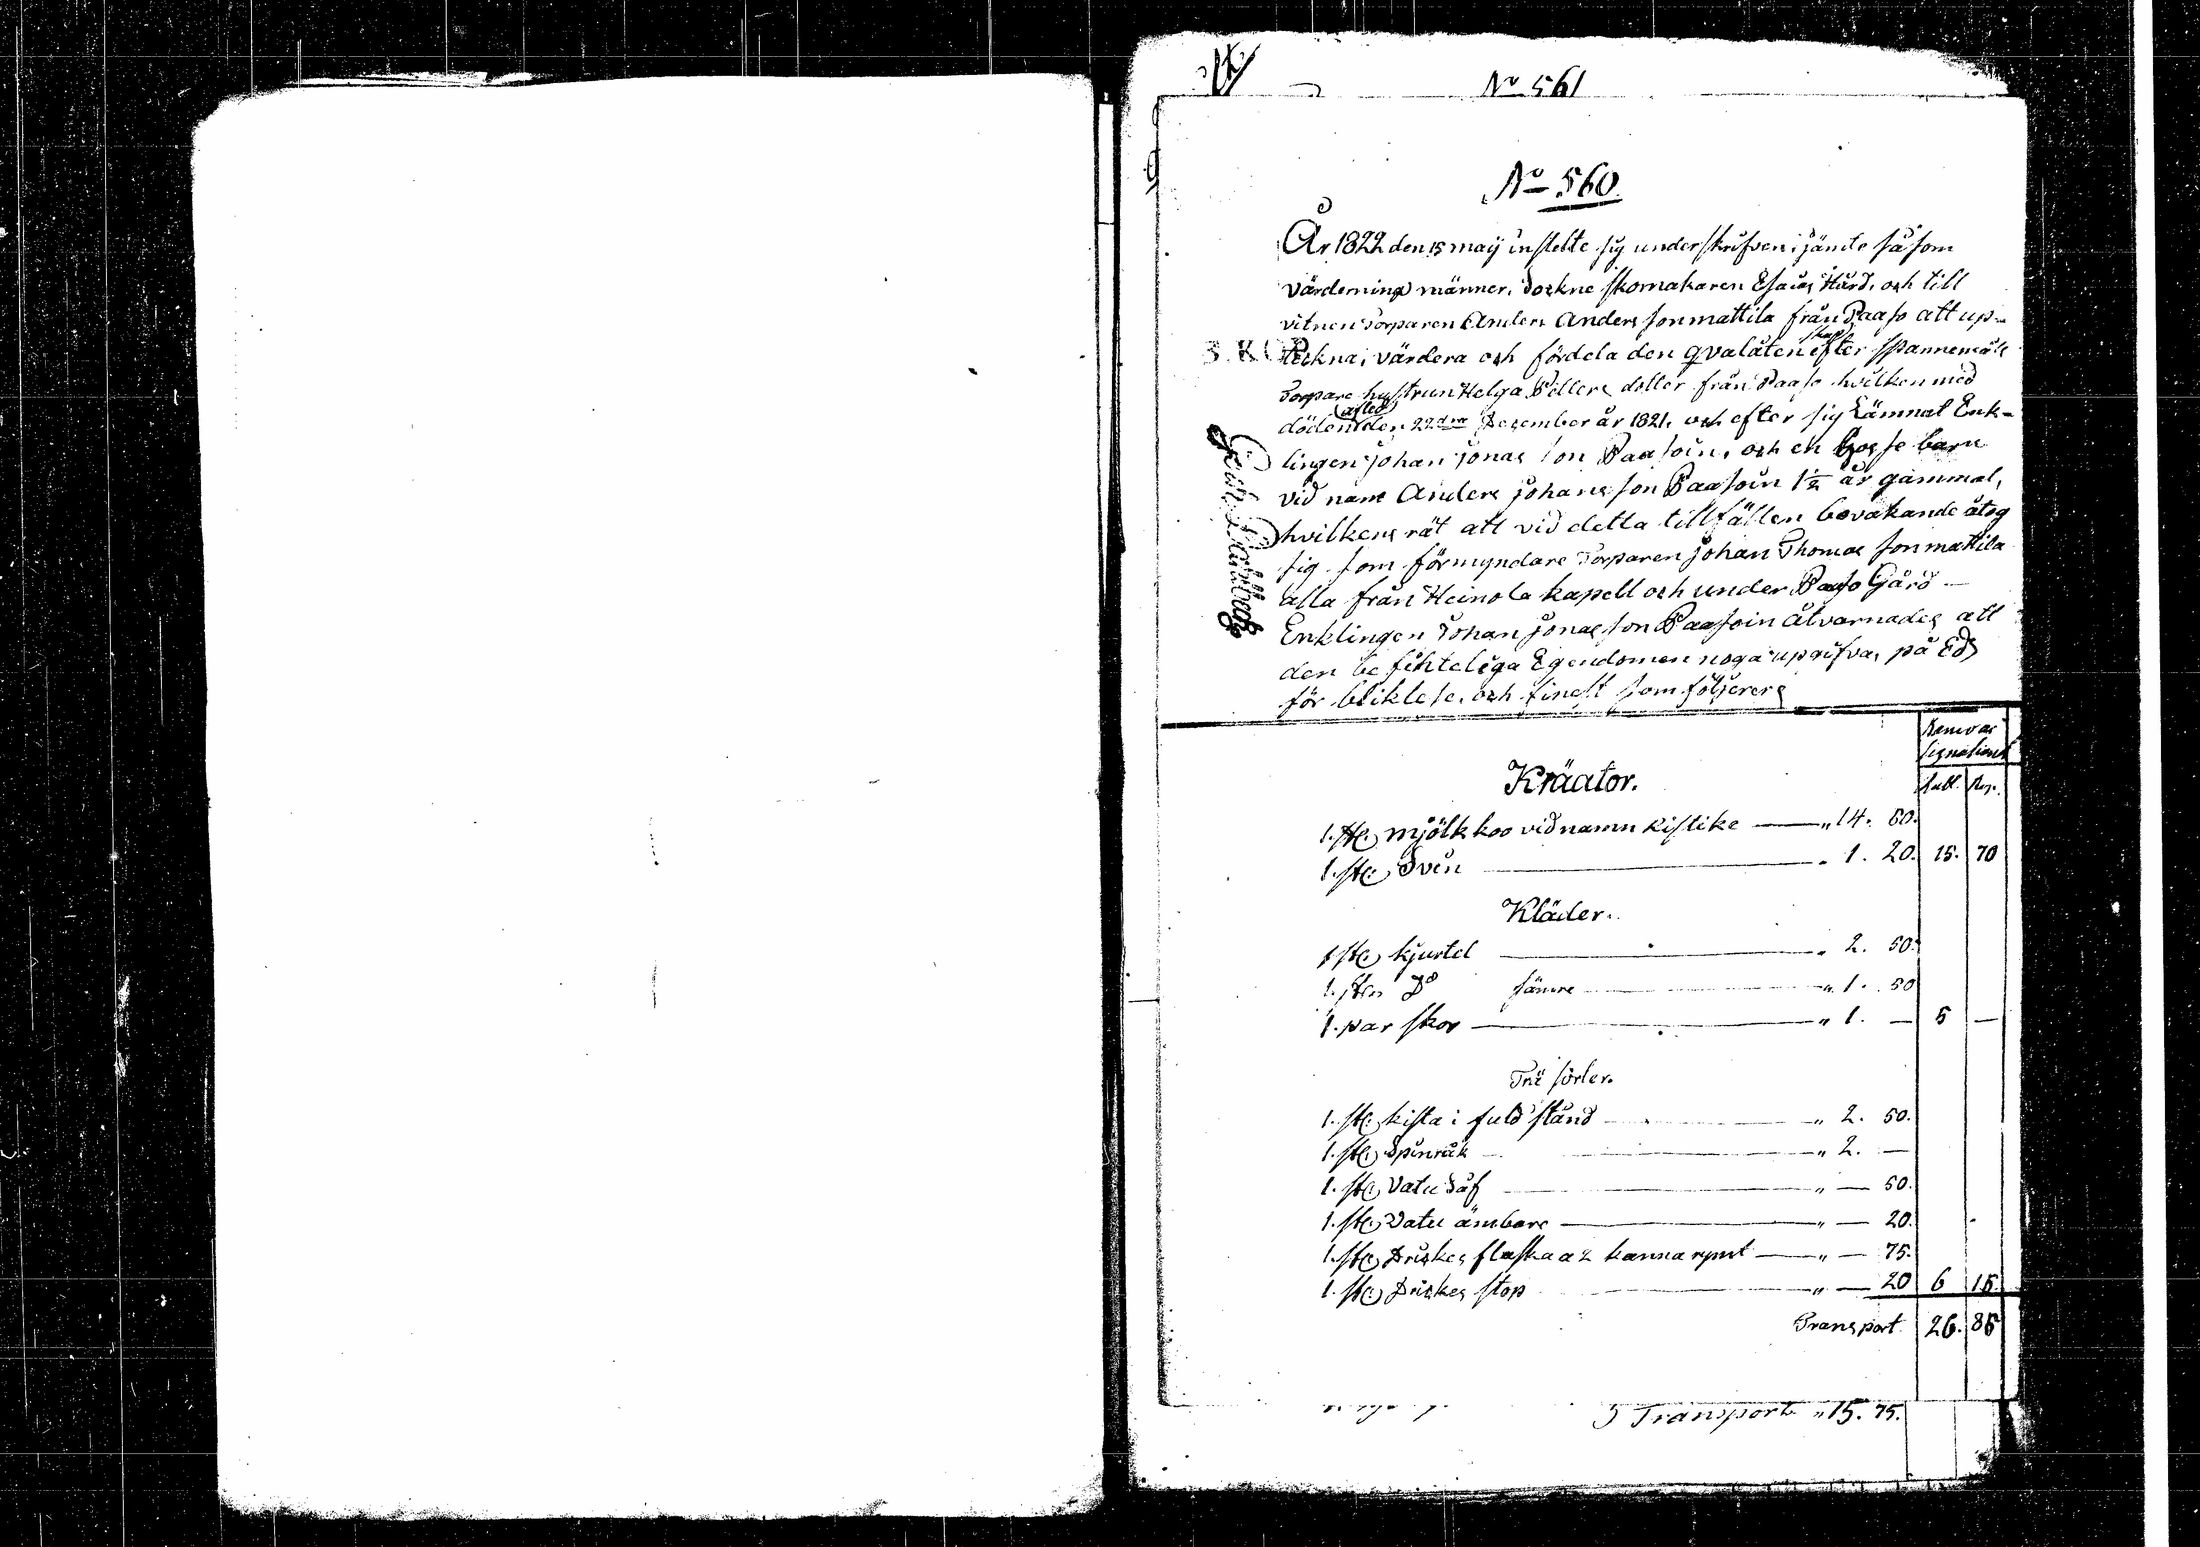 No 561
No 560
År 1822 den 15 maij instelte sig underskrifven, jämte såsom
värderings männer, Sockne skomakaren Esaias Hård, och till
vitnen Torparen Anders Andersson mattila från Paaso att up-
tekna, värdera och fördela den qvalåtenskap efter Spannemåls
Torpare hustrun Helga Pellers dotter från Paaso hvilken med
döden afled den 22dra Desember år 1821, och efter sig Lämnat Enk-
lingen Johan Jonas son Paasoin, och en Gosse barn
vid namn Anders Johans son Paasoin 1½ år gammal,
hvilkens rät att vid detta tillfällen bevakande åtog
sig som förmyndare Torparen Johan Thomas son mattila
alla från Heinola kapell och under Paaso Gård —
Enklingen Johan Jonas son Paasoin åtvarnades att
den befihteliga Egendomen noga upgifvas på Ed
för bliklese, och finest som följerers
3. KOP
Banco as
signationer
Rubl. Kop.
Kräator.
1. st. mjölk koo vid namn Kistike — " 14. 50.
1. st. Svin — " 1. 20. 15. 70
Kläder.
1 st. kjurtel — " 2. 50.
1. st. Do sämre — " 1. 50
1. par skor — " 1. — 5 —
Trä sörler.
1. st. kista i fuld stånd — " 2. 50.
1. st. Spinråk — " 2. —
1. st. Vatu Såf — " — 50.
1. st. Vatu ämbare — " — 20.
1. st. Drickes flaska a 2 kanna rymt — " — 75.
1. st. Drickes stop — " — 20 6 15.
Transport 26. 85
Transport " 15. 75.